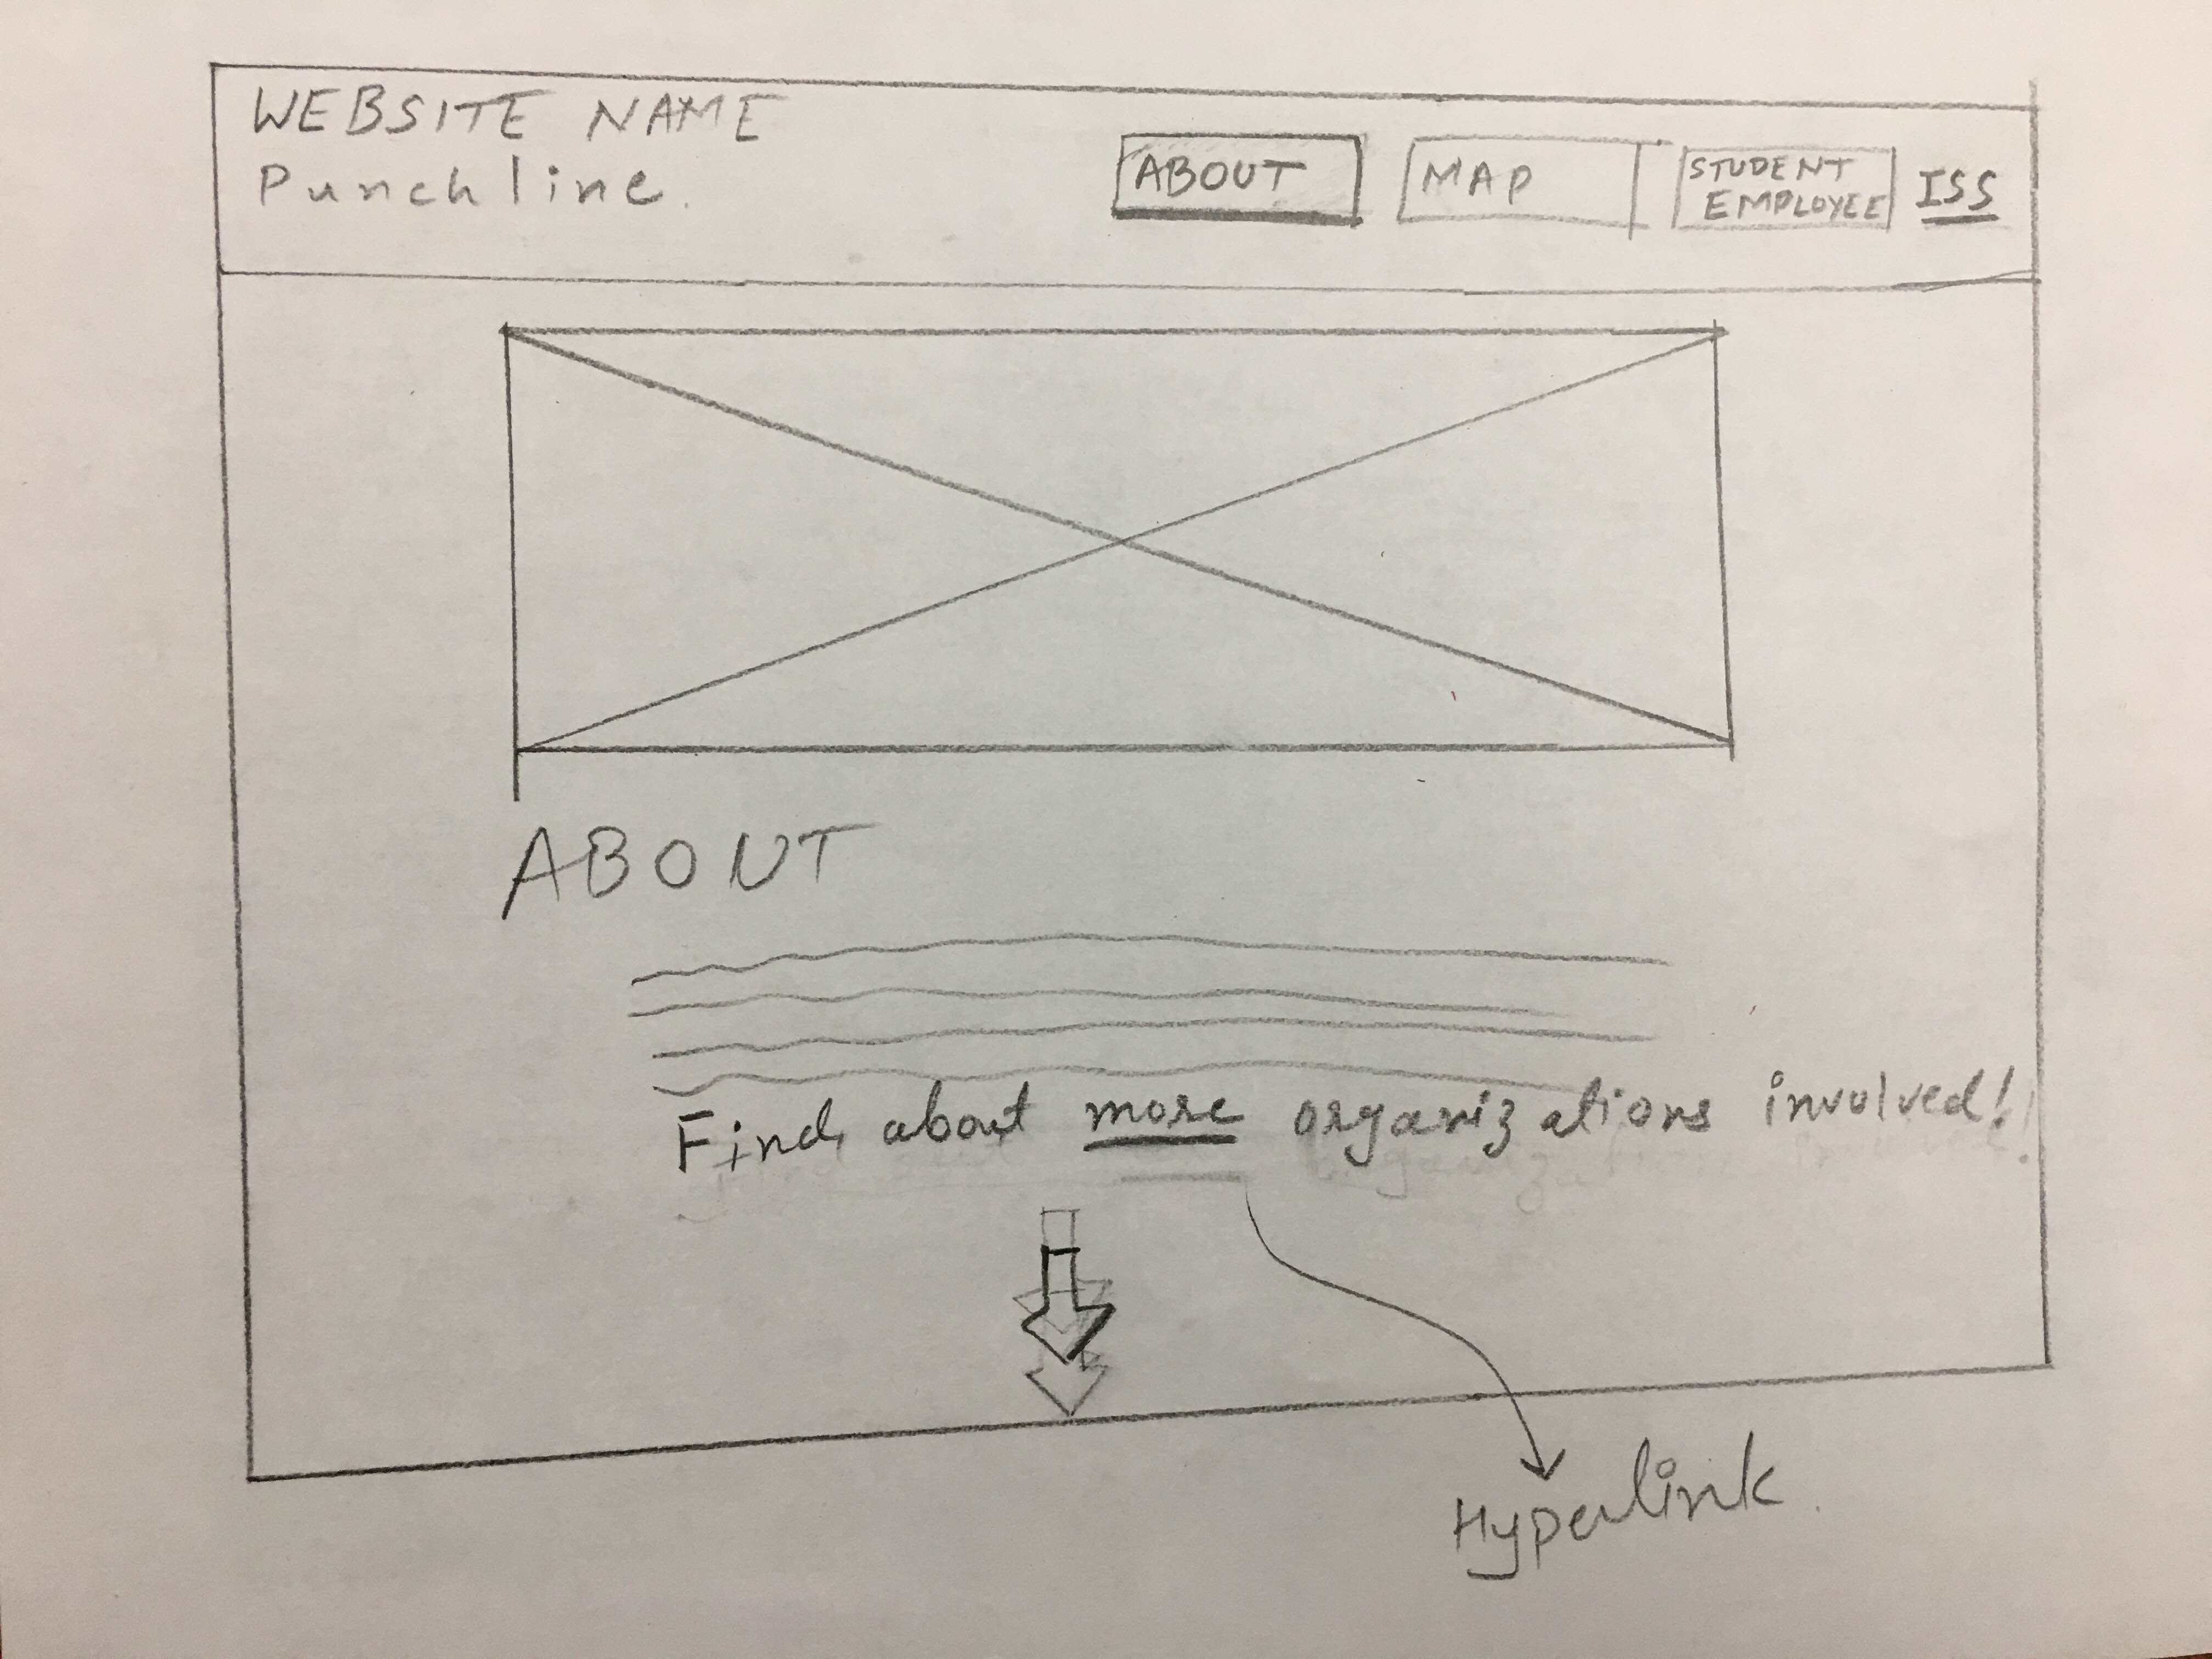 WEBSITE NAME
Punchline.
ABOUT
MAP
STUDENT
EMPLOYEE
ISS
ABOUT
Find about more organizations involved!
Hyperlink.